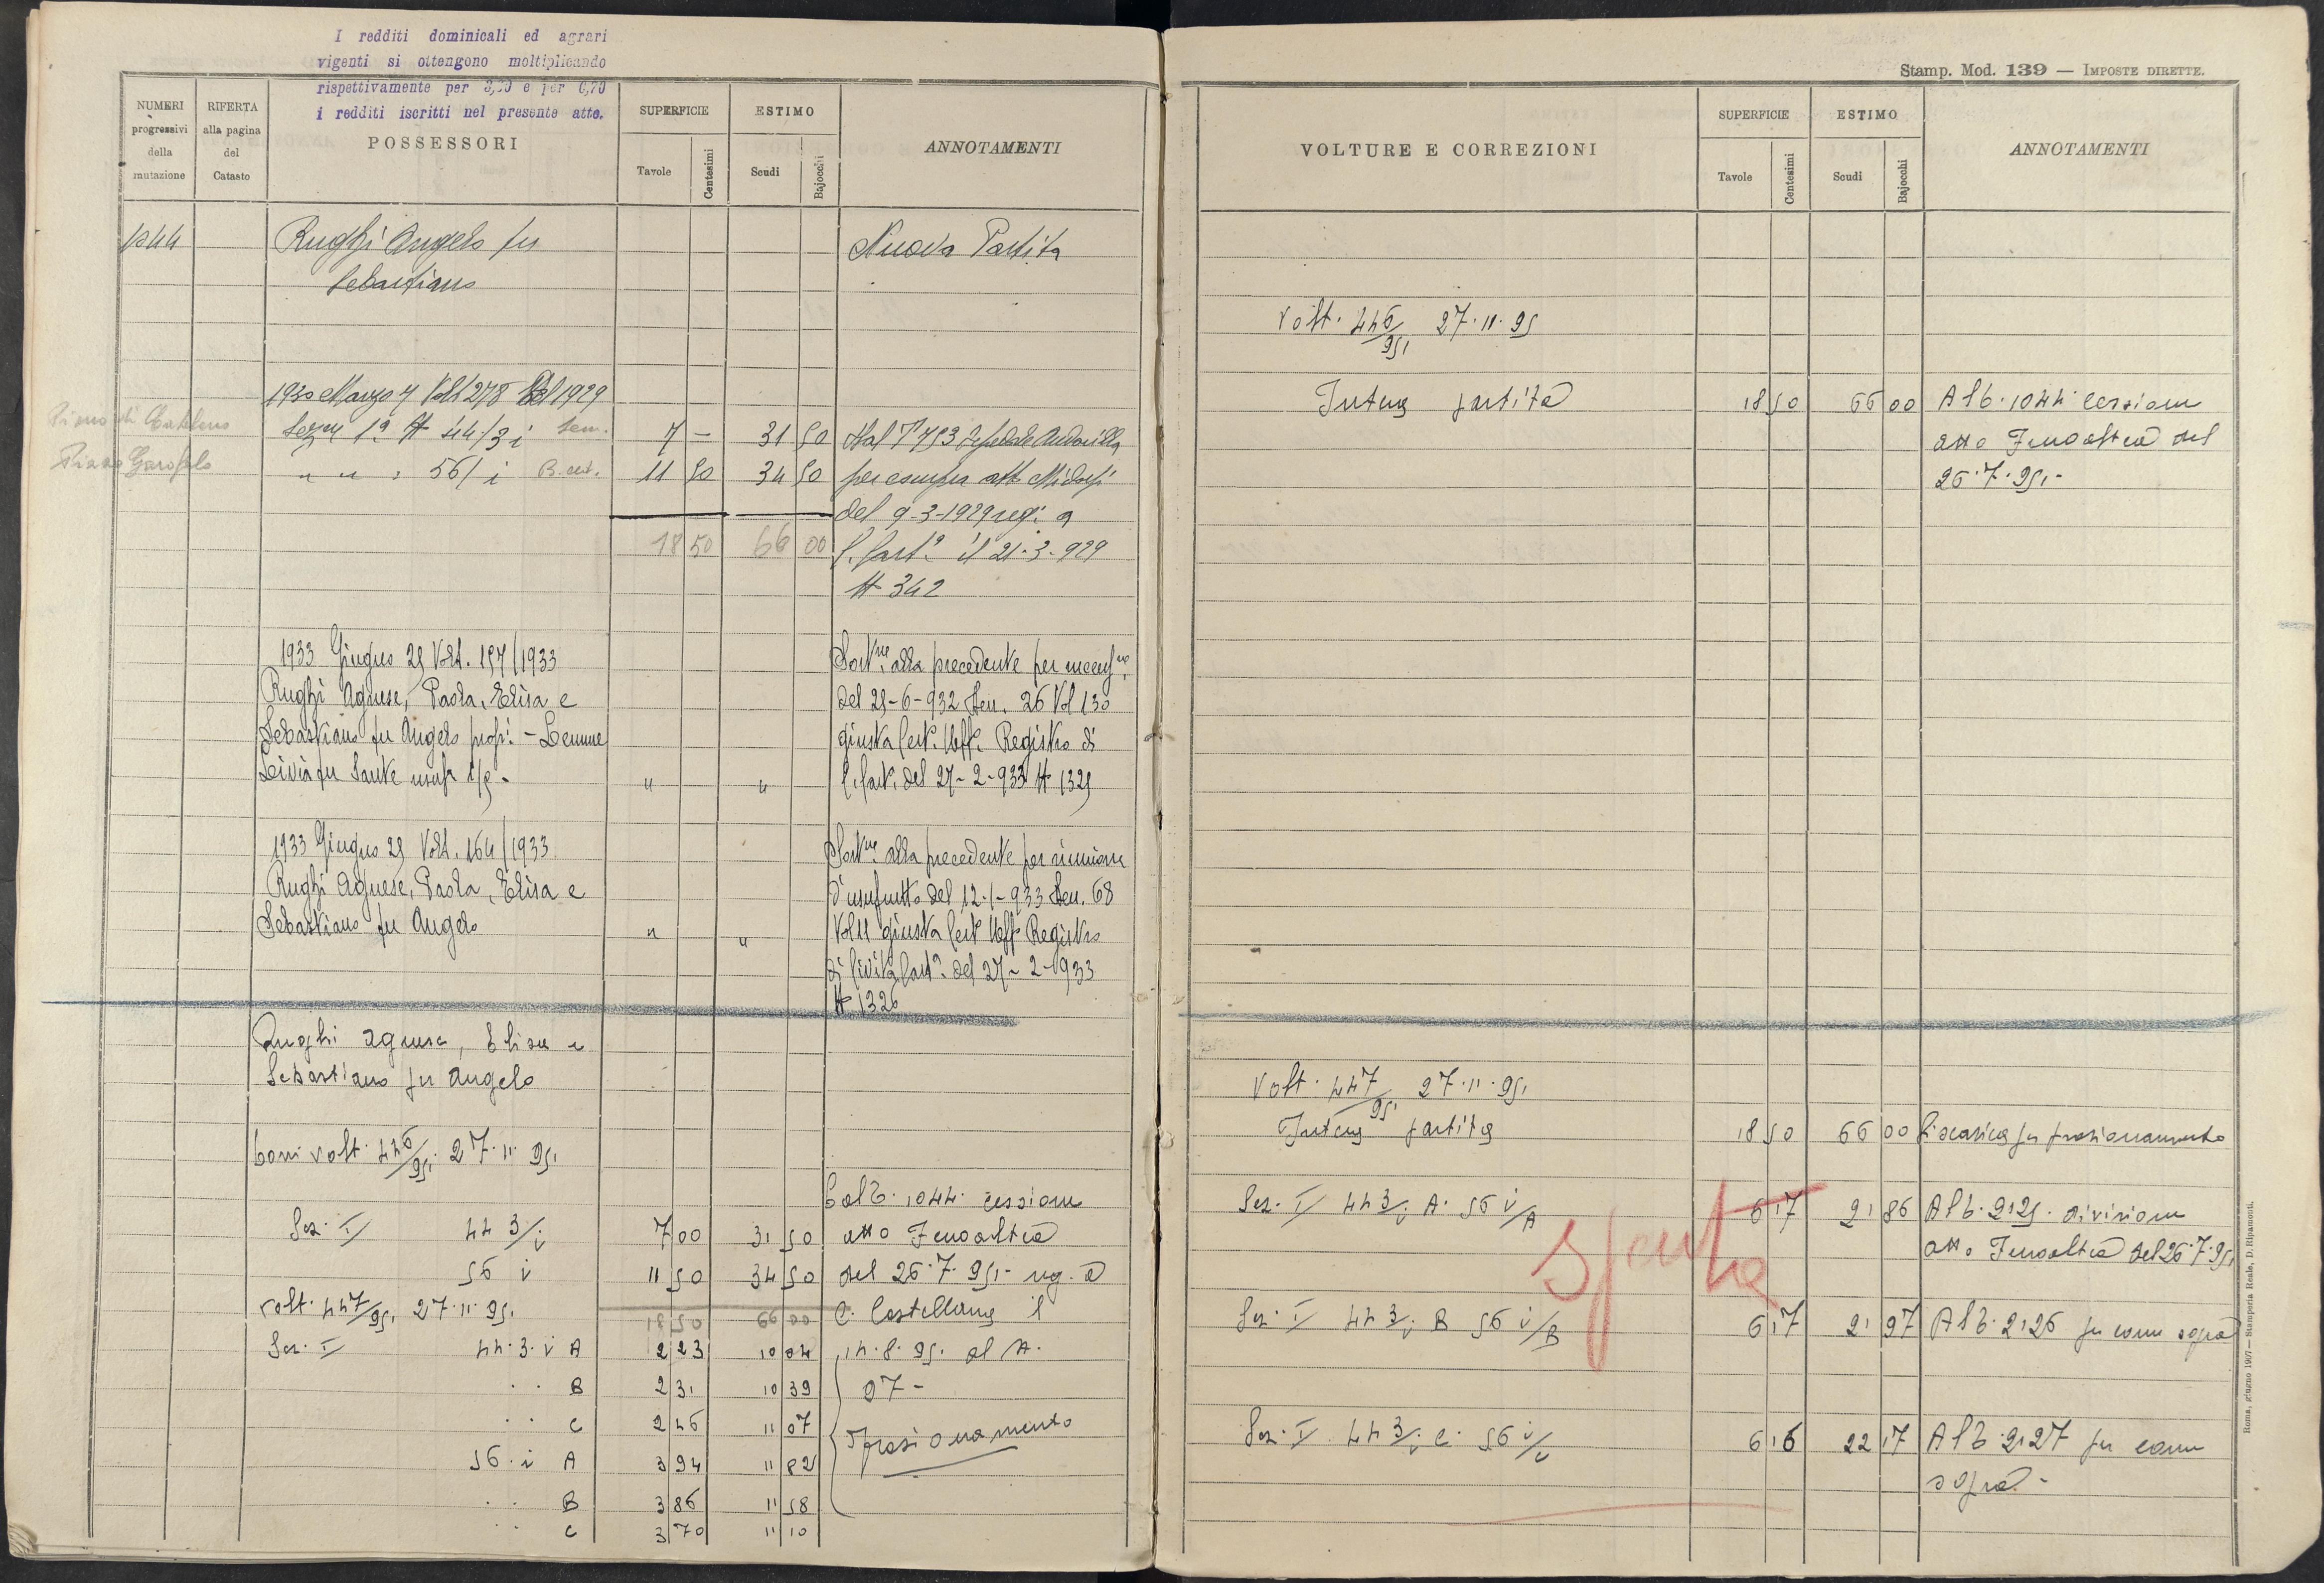 I redditi dominicali ed agrari
vigenti si ottengono moltiplicando
rispettivamente per 3,20 e per 0,70
i redditi iscritti nel presente atto.
NUMERI
progressivi
della
mutazione
RIFERTA
alla pagina
del
Catasto
POSSESSORI
SUPERFICIE
Tavole
Centesimi
ESTIMO
Scudi
Bajocchi
ANNOTAMENTI
1044
Rughi Angelo fu
Sebastiano
Nuova Partita
1930 Marzo 7 Volt 278 del 1929
Sezne 1ª N 44/3 i Sem. 7 — 31 50
" " " 56/ i 11 50 34 50
per atto
del 9-3-1929 reg. a
C. Cast.ª il 21-3-929
N 342
18 50 66 00
1933 Giugno 29 Volt. 157/1933
Rughi Agnese, Paola, Elisa e
Sebastiano fu Angelo propri. - Lemme
Livia fu Sante usuf. 1/5 - " "
alla precedente per
del 29-6-932 Den. 26 Vol 130
giusta Cert. Uff. Registro di
C. Cast. del 27-2-933 N 1325
1933 Giugno 29 Volt. 164/1933
Rughi Agnese, Paola, Elisa e
Sebastiano fu Angelo " "
alla precedente per riunione
d'usufrutto del 12-1-933 Den. 68
Vol 11 giusta Cert Uff. Registro
di Civita Cast.ª del 27-2-1933
N 1326
Rughi Agnese, Elisa e
Sebastiano fu Angelo
Con volt. 446/951 27.11.951
Sez. I 44 3/i 7 00 31 50
56 i 11 50 34 50
18 50 66 00
Dall'ib. 1044 cessione
atto Fenoaltea
del 26.7.951 reg. a
C. Castellana il
14.8.951 al N.
07 -
Volt. 447/951 27.11.951
Sez. I 44.3.i A 2 23 10 04
" " B 2 31 10 39
" " C 2 46 11 07
56.i A 3 94 11 82
" " B 3 86 11 58
" " C 3 70 11 10
Frazionamento
Stamp. Mod. 139 — IMPOSTE DIRETTE.
VOLTURE E CORREZIONI
SUPERFICIE
Tavole
Centesimi
ESTIMO
Scudi
Bajocchi
ANNOTAMENTI
Volt. 446/951 27.11.951
Intera partita 18 50 66 00 All'ib. 1044 cessione
atto Fenoaltea del
26.7.951 -
Volt. 447/951 27.11.951
Intera partita 18 50 66 00 Discarica per frazionamento
Sez. I 44 3/i A. 56 i/A 6 17 21 86 All'ib. 2125. divisione
atto Fenoaltea del 26.7.951
Spenta
Sez. I 44 3/i B 56 i/B 6 17 21 97 All'ib. 2126 per come sopra
Sez. I 44 3/i C. 56 i/C 6 16 22 17 All'ib. 2127 per come
sopra -
Roma, giugno 1907 — Stamperia Reale, D. Ripamonti.